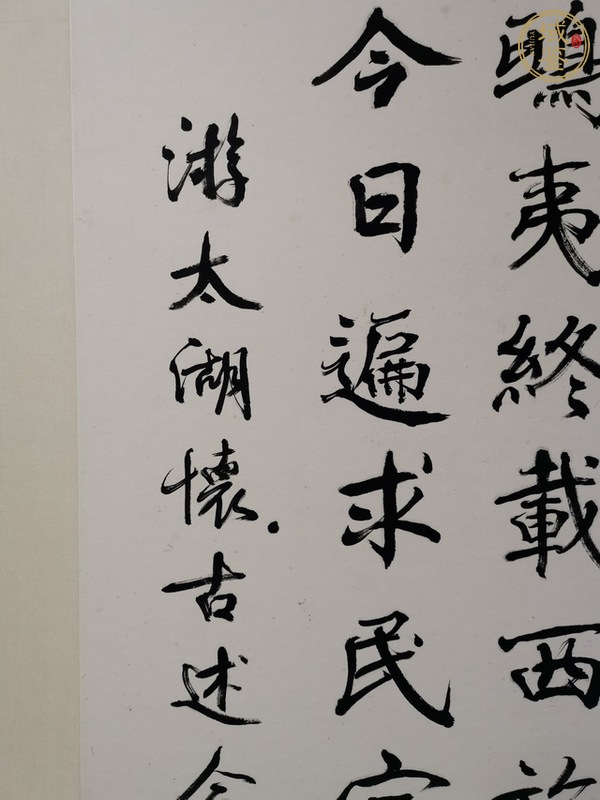 鴟夷終載西施
今日遍求民
游太湖懷古述今